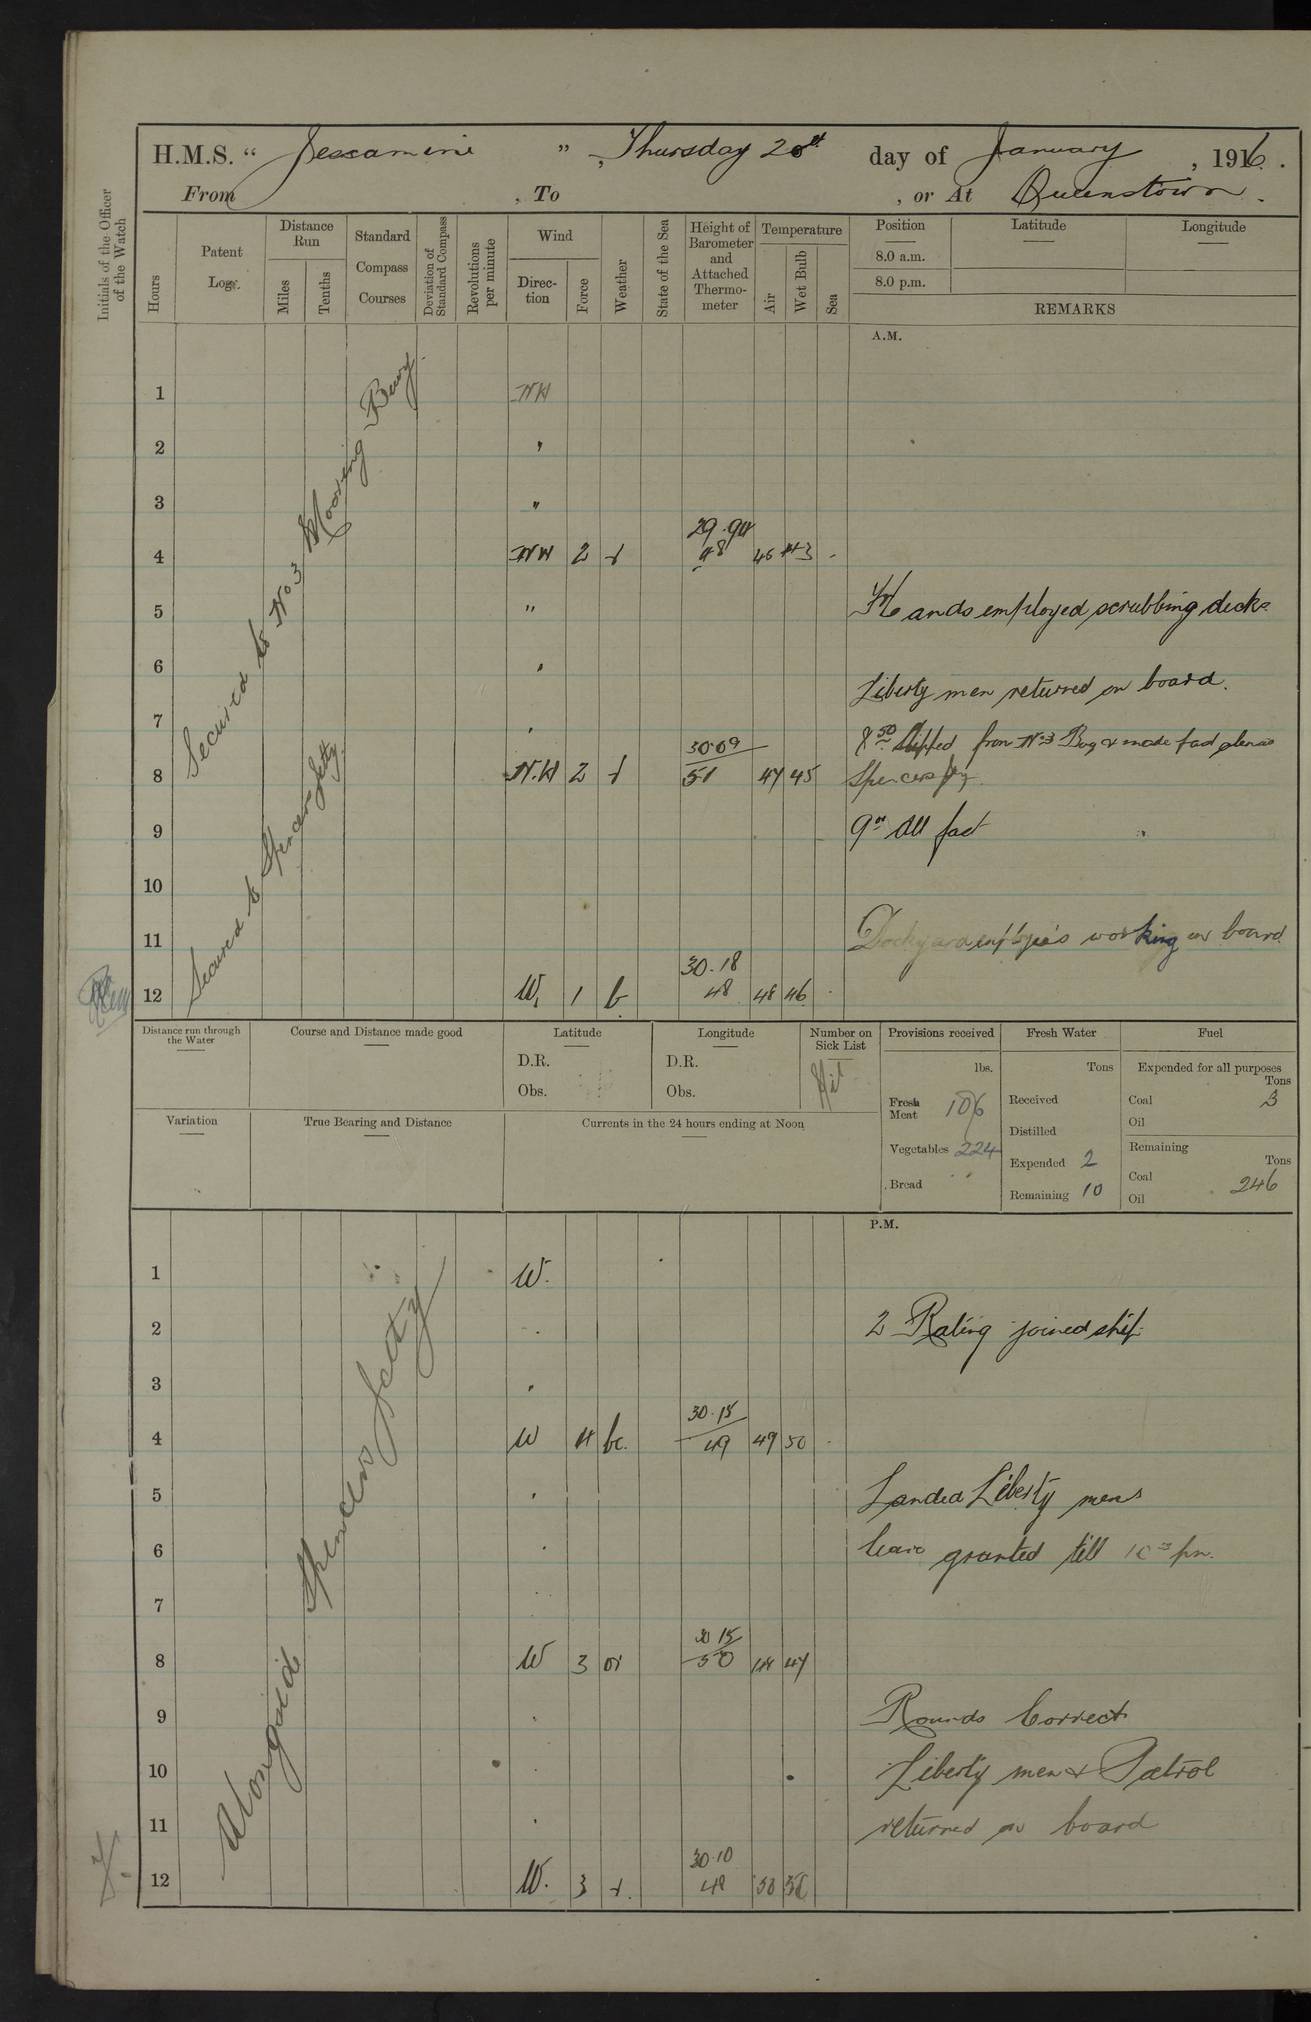 H.M.S. “ Jessamine ” , Thursday 20th day of January , 1916 .
From , To , or At Queenstown .
Initials of the Officer of the Watch
Hours
Patent Log.
Distance Run
Miles
Tenths
Standard Compass Courses
Deviation of Standard Compass
Revolutions per minute
Wind
Direction
Force
Weather
State of the Sea
Height of Barometer and Attached Thermometer
Temperature
Air
Wet Bulb
Sea
Position
8.0 a.m.
8.0 p.m.
Latitude
Longitude
REMARKS
A.M.
Secured to No 3 Mooring Buoy.
Secured to Spencer Jetty.
1 NW
2 "
3 "
29.94
4 NW 2 48 45 43
5 " Hands employed scrubbing decks
6 "
Liberty men returned on board.
7 " 8 50 Slipped from No 3 Buoy & made fast
30.09
8 N.W 2 51 47 45 Spencers Jty
9 9 00 All fast
10
11 Dockyard employee's working on board
30.18
12 W. 1 b. 48 48 46
Distance run through the Water
Course and Distance made good
Latitude
D.R.
Obs.
Longitude
D.R.
Obs.
Number on Sick List
Nil
Provisions received
lbs.
Fresh Meat 106
Vegetables 224
Bread
Fresh Water
Tons
Received
Distilled
Expended 2
Remaining 10
Fuel
Expended for all purposes
Tons
Coal 3
Oil
Remaining
Tons
Coal 246
Oil
Variation
True Bearing and Distance
Currents in the 24 hours ending at Noon
P.M.
Alongside Spencers Jetty
1 W.
2 2 Rating joined ship.
3 "
30.15
4 W 4 bc. 49 49 50
5 " Landed Liberty men
6 " leave granted till pm.
7
30 15
8 W 3 50 47
9 Rounds Correct
10 Liberty men & Patrol
11 returned on board
30.10
12 W. 3 48 50